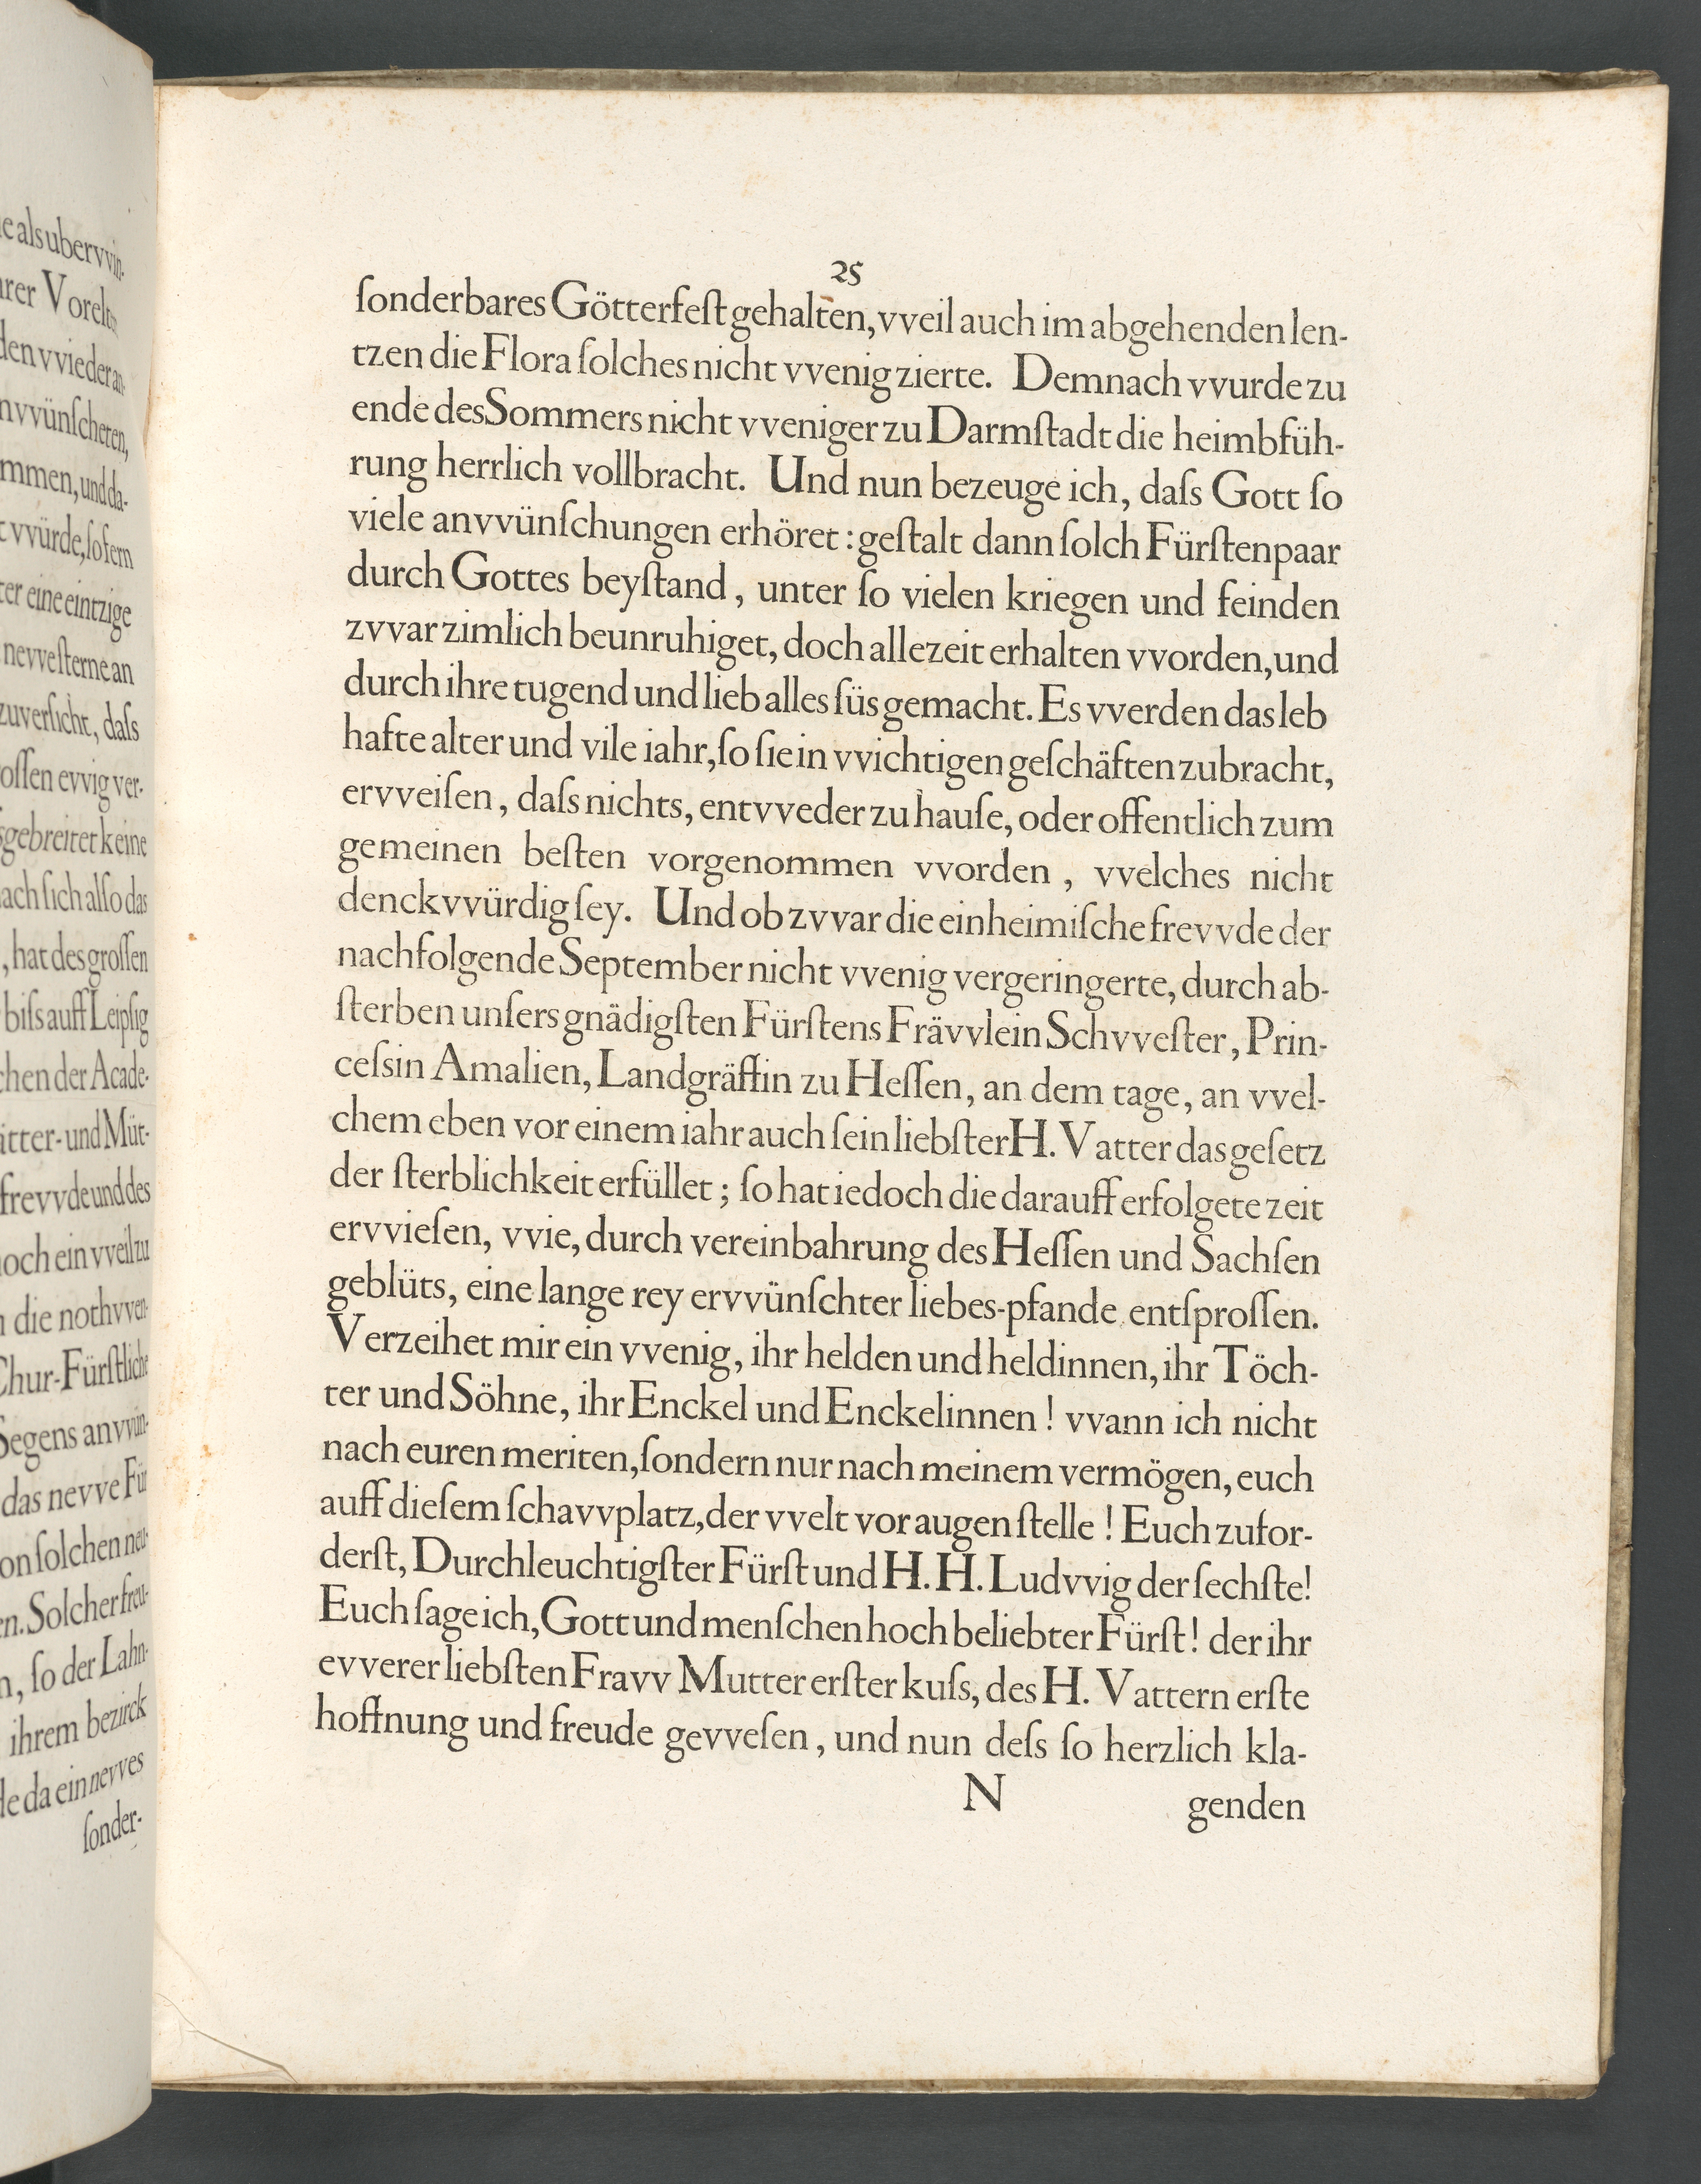 e als ubervvin-
rer Vorelt
den vvieder an-
nvvünſcheten,
mmen, und da-
t vvürde, ſofern
ter eine eintzige
nevve ſterne an
zuverſicht, daſs
oſſen evvig ver-
sgebreitet keine
ach ſich alſo das
, hat des groſſen
biſs auff Leipſig
chen der Acade-
ätter- und Müt-
frevvde und des
och ein vveil zu
n die nothvven-
Chur-Fürſtliche
Segens anvvün-
das nevve Für
on ſolchen neu-
en. Solcher freu-
n, ſo der Lahn-
ihrem bezirck
de da ein nevves
ſonder-
25
ſonderbares Götterfeſt gehalten, vveil auch im abgehenden len-
tzen die Flora ſolches nicht vvenig zierte. Demnach vvurde zu
ende des Sommers nicht vveniger zu Darmſtadt die heimbfüh-
rung herrlich vollbracht. Und nun bezeuge ich, daſs Gott ſo
viele anvvünſchungen erhöret : geſtalt dann ſolch Fürſtenpaar
durch Gottes beyſtand, unter ſo vielen kriegen und feinden
zvvar zimlich beunruhiget, doch allezeit erhalten vvorden, und
durch ihre tugend und lieb alles ſüs gemacht. Es vverden das leb
hafte alter und vile iahr, ſo ſie in vvichtigen geſchäften zubracht,
ervveiſen, daſs nichts, entvveder zu hauſe, oder offentlich zum
gemeinen beſten vorgenommen vvorden, vvelches nicht
denckvvürdig ſey. Und ob zvvar die einheimiſche frevvde der
nachfolgende September nicht vvenig vergeringerte, durch ab-
ſterben unſers gnädigſten Fürſtens Frävvlein Schvveſter, Prin-
ceſsin Amalien, Landgräffin zu Heſſen, an dem tage, an vvel-
chem eben vor einem iahr auch ſein liebſter H. Vatter das geſetz
der ſterblichkeit erfüllet ; ſo hat iedoch die darauff erfolgete zeit
ervvieſen, vvie, durch vereinbahrung des Heſſen und Sachſen
geblüts, eine lange rey ervvünſchter liebes-pfande entſproſſen.
Verzeihet mir ein vvenig, ihr helden und heldinnen, ihr Töch-
ter und Söhne, ihr Enckel und Enckelinnen ! vvann ich nicht
nach euren meriten, ſondern nur nach meinem vermögen, euch
auff dieſem ſchavvplatz, der vvelt vor augen ſtelle ! Euch zufor-
derſt, Durchleuchtigſter Fürſt und H. H. Ludvvig der ſechſte!
Euch ſage ich, Gott und menſchen hoch beliebter Fürſt! der ihr
evverer liebſten Fravv Mutter erſter kuſs, des H. Vattern erſte
hoffnung und freude gevveſen, und nun deſs ſo herzlich kla-
N genden